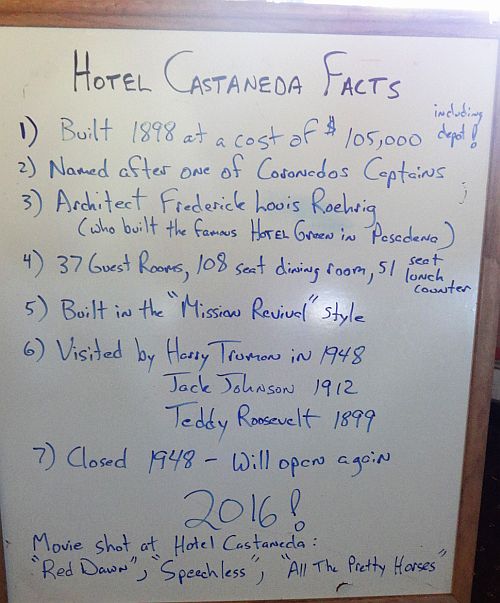 HOTEL CASTANEDA FACTS
1) Built 1898 at a cost of $105,000 including depot!
2) Named after one of Coronedos Captains
3) Architect Frederick Louis Roehrig
(who built the famous HOTEL Green in Pasadena)
4) 37 Guest Rooms, 108 seat dining room, 51 seat lunch counter
5) Built in the "Mission Revival" style
6) Visited by Harry Truman in 1948
Jack Johnson 1912
Teddy Roosevelt 1899
7) Closed 1948 - Will open again
2016!
Movie shot at Hotel Castaneda:
"Red Dawn", "Speechless", "All The Pretty Horses"